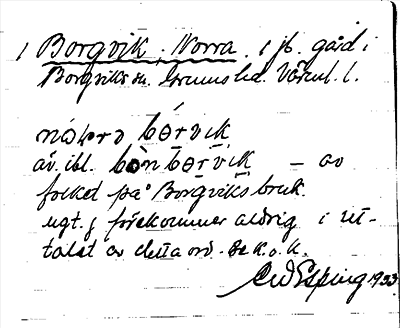 1 Borgvik, Norra. 1 jb. gård i
Borgviks sn. Grums hd. Värml. l.
nɷ́hrɷ bɵ́rvik
äv. ibl. bɷnbɵrvik – av
folket på Borgviks bruk.
ngt. j förekommer aldrig i ut-
talet av detta ord. Se k.o.h.
Esping 1933